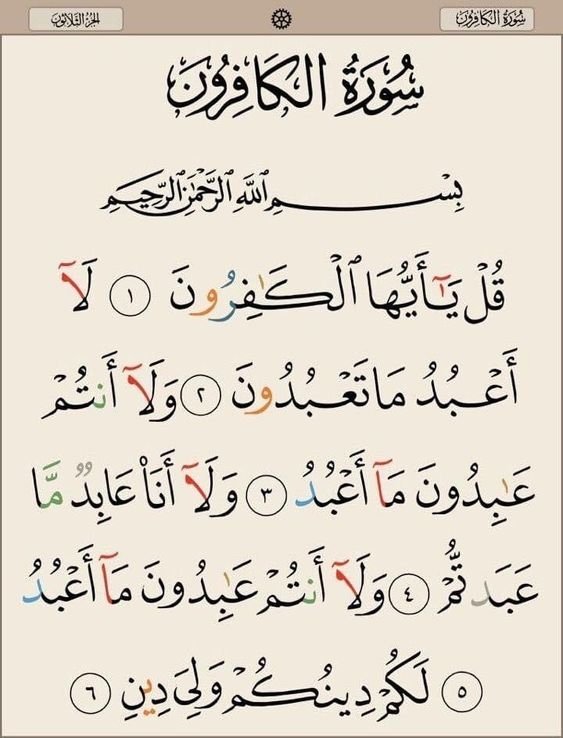 سُورَةُ الكَافِرُونَ
الجُزْءُ الثَّلَاثُونَ
سُورَةُ الكَافِرُونَ
بِسْمِ ٱللَّهِ ٱلرَّحْمَٰنِ ٱلرَّحِيمِ
قُلْ يَٰٓأَيُّهَا ٱلْكَٰفِرُونَ ١ لَآ
أَعْبُدُ مَا تَعْبُدُونَ ٢ وَلَآ أَنتُمْ
عَٰبِدُونَ مَآ أَعْبُدُ ٣ وَلَآ أَنَا۠ عَابِدٌ مَّا
عَبَدتُّمْ ٤ وَلَآ أَنتُمْ عَٰبِدُونَ مَآ أَعْبُدُ
٥ لَكُمْ دِينُكُمْ وَلِىَ دِينِ ٦